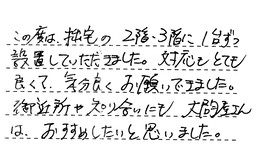 この度は、拙宅の2階・3階に1台ずつ
設置していただきました。対応もとても
良くて、気分良くお願いできました。
御近所や知り合いにも大間産さん
は、おすすめしたいと思いました。